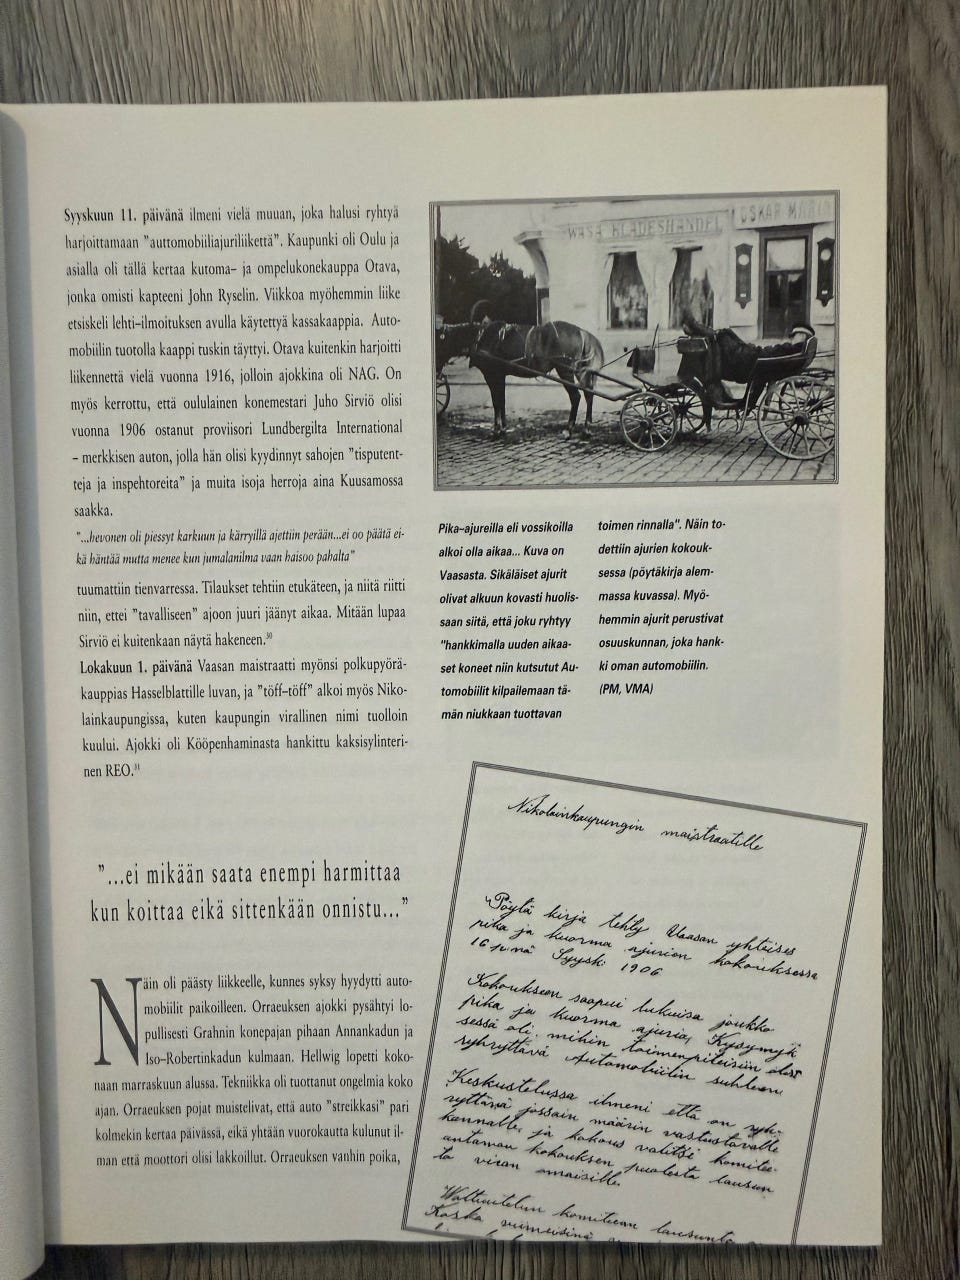 Syyskuun 11. päivänä ilmeni vielä muuan, joka halusi ryhtyä
harjoittamaan "auttomobiiliajuriliikettä". Kaupunki oli Oulu ja
asialla oli tällä kertaa kutoma- ja ompelukonekauppa Otava,
jonka omisti kapteeni John Ryselin. Viikkoa myöhemmin liike
etsiskeli lehti-ilmoituksen avulla käytettyä kassakaappia. Auto-
mobiilin tuotolla kaappi tuskin täyttyi. Otava kuitenkin harjoitti
liikennettä vielä vuonna 1916, jolloin ajokkina oli NAG. On
myös kerrottu, että oululainen konemestari Juho Sirviö olisi
vuonna 1906 ostanut proviisori Lundbergilta International
- merkkisen auton, jolla hän olisi kyydinnyt sahojen "tisputent-
teja ja inspehtoreita" ja muita isoja herroja aina Kuusamossa
saakka.
"...hevonen oli piessyt karkuun ja kärryillä ajettiin perään...ei oo päätä ei-
kä häntää mutta menee kun jumalanilma vaan haisoo pahalta"
tuumattiin tienvarressa. Tilaukset tehtiin etukäteen, ja niitä riitti
niin, ettei "tavalliseen" ajoon juuri jäänyt aikaa. Mitään lupaa
Sirviö ei kuitenkaan näytä hakeneen.³⁰
Lokakuun 1. päivänä Vaasan maistraatti myönsi polkupyörä-
kauppias Hasselblattille luvan, ja "töff-töff" alkoi myös Niko-
lainkaupungissa, kuten kaupungin virallinen nimi tuolloin
kuului. Ajokki oli Kööpenhaminasta hankittu kaksisylinteri-
nen REO.³¹
"...ei mikään saata enempi harmittaa
kun koittaa eikä sittenkään onnistu..."
Näin oli päästy liikkeelle, kunnes syksy hyydytti auto-
mobiilit paikoilleen. Orraeuksen ajokki pysähtyi lo-
pullisesti Grahnin konepajan pihaan Annankadun ja
Iso-Robertinkadun kulmaan. Hellwig lopetti koko-
naan marraskuun alussa. Tekniikka oli tuottanut ongelmia koko
ajan. Orraeuksen pojat muistelivat, että auto "streikkasi" pari
kolmekin kertaa päivässä, eikä yhtään vuorokautta kulunut il-
man että moottori olisi lakkoillut. Orraeuksen vanhin poika,
WASA KLÄDESHANDEL
OSKAR
Pika-ajureilla eli vossikoilla
alkoi olla aikaa... Kuva on
Vaasasta. Sikäläiset ajurit
olivat alkuun kovasti huolis-
saan siitä, että joku ryhtyy
"hankkimalla uuden aikaa-
set koneet niin kutsutut Au-
tomobiilit kilpailemaan tä-
män niukkaan tuottavan
toimen rinnalla". Näin to-
dettiin ajurien kokouk-
sessa (pöytäkirja alem-
massa kuvassa). Myö-
hemmin ajurit perustivat
osuuskunnan, joka hank-
ki oman automobiilin.
(PM, VMA)
Nikolainkaupungin maistraatille
Pöytä kirja tehty Vaasan yhteises
pika ja kuorma ajurien kokouksessa
16 p:nä Syysk. 1906
Kokoukseen saapui lukuisa joukko
pika ja kuorma ajuria, Kysymyk
sessä oli mihin toimenpiteisiin olisi
ryhryttävä Automobiilin suhteen
Keskustelussa ilmeni että on ryh-
ryttävä jossain määrin vastustavalle
kannalle, ja kokous valitsi komitee
antamaan kokouksen puolesta lausun
to viran omaisille.
komitean lausunto
Koska viimeisinä